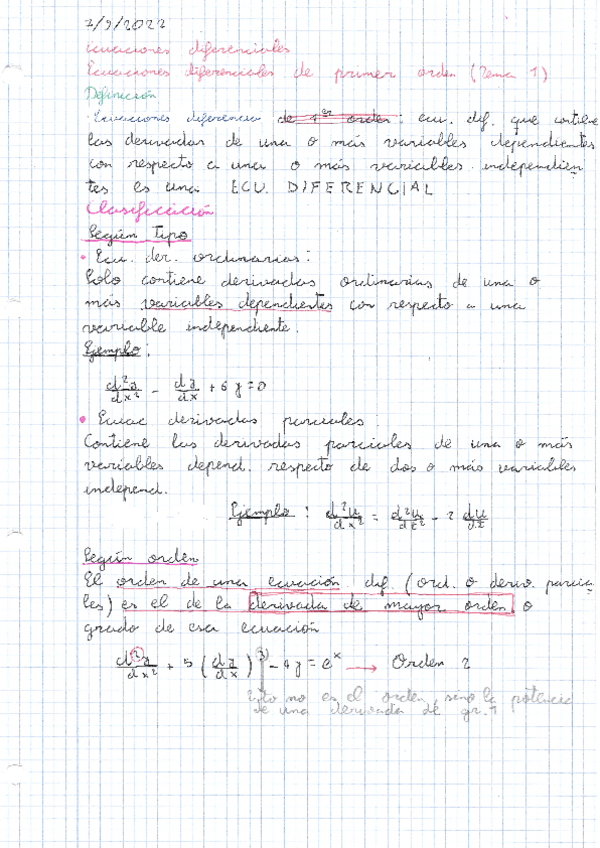 7/9/2022
Ecuaciones diferenciales
Ecuaciones diferenciales de primer orden (Tema 1)
Definición
· Ecuaciones diferencia de 1er orden: ecu. dif. que contiene
las derivadas de una o más variables dependientes
con respecto a una o más variables independien
tes es una ECU. DIFERENCIAL
Clasificación
Según Tipo
• Ecu. der. ordinarias:
Solo contiene derivadas ordinarias de una o
más variables dependientes con respecto a una
variable independiente.
Ejemplo:
d²y/dx² - dy/dx + 6y = 0
• Ecuac derivadas parciales:
Contiene las derivadas parciales de una o más
variables depend. respecto de dos o más variables
independ.
Ejemplo: d²u/dx² = d²u/dt² - 2 du/dt
Según orden
El orden de una ecuación dif. (ord. o deriv. parcia
les) es el de la derivada de mayor orden o
grado de esa ecuación
d²y/dx² + 5 (dy/dx)³ - 4y = eˣ → Orden 2
Esto no es el orden, sino la potencia
de una derivada de gr. 1